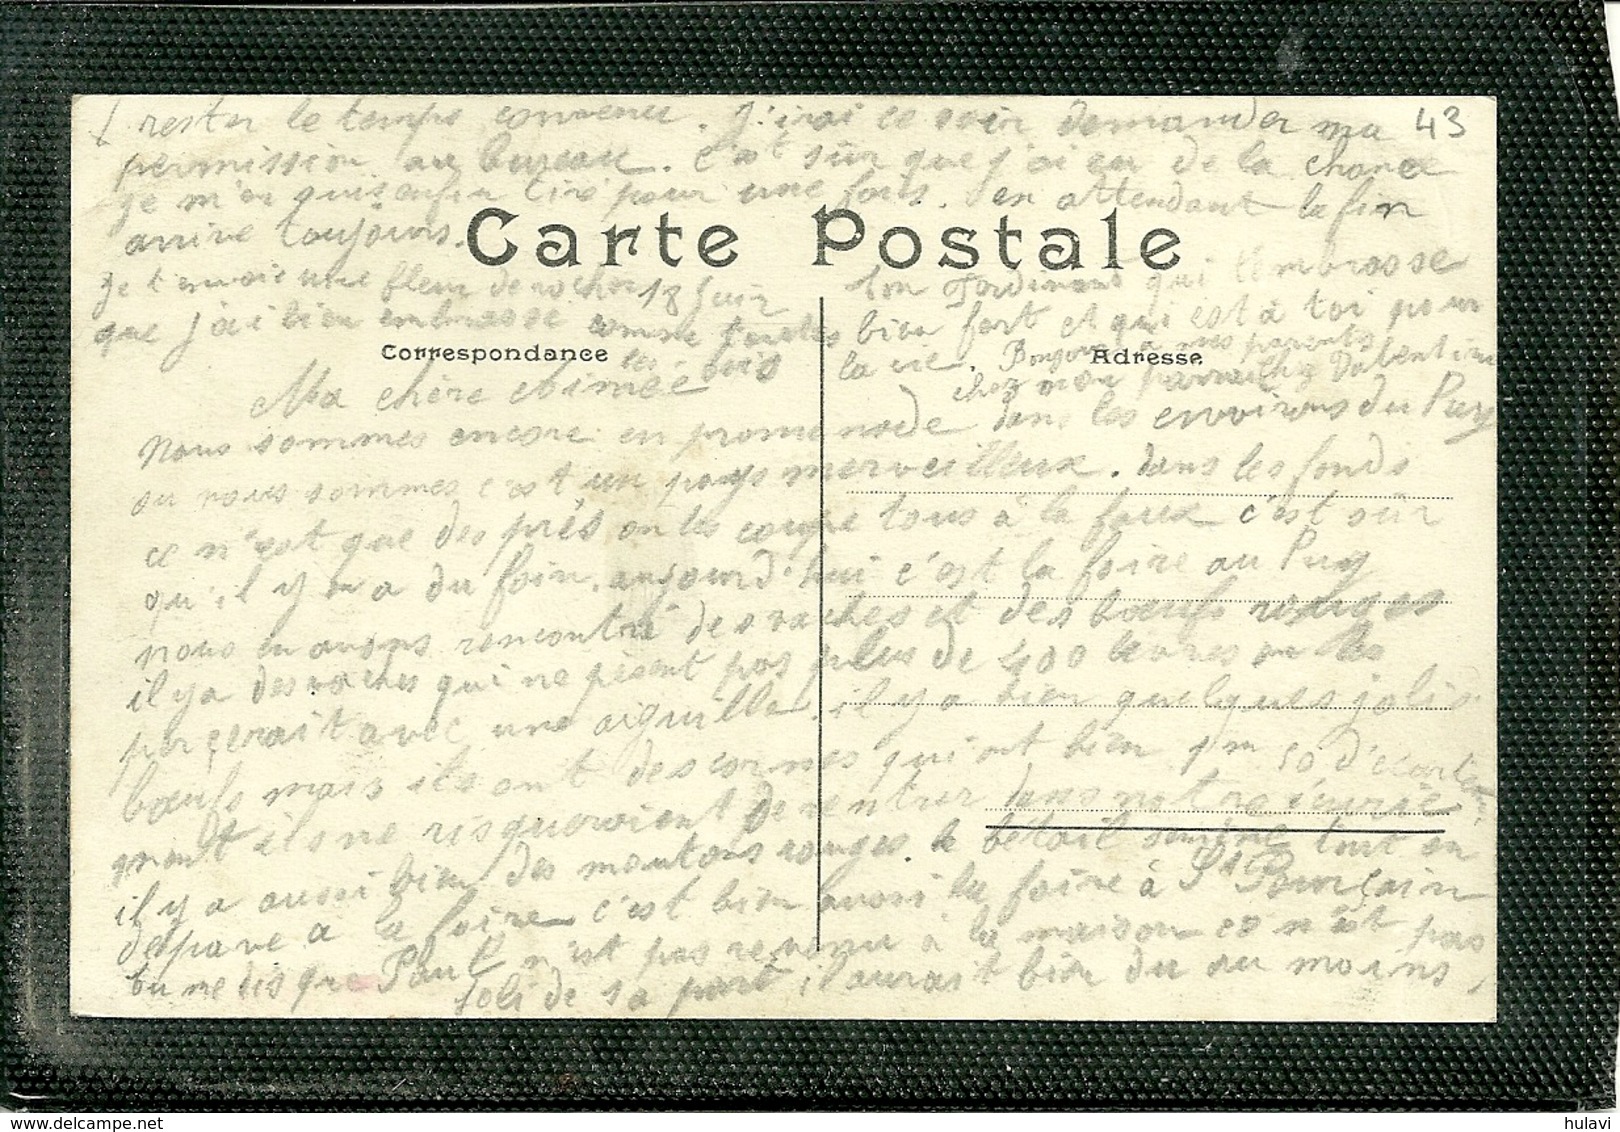 rester le temps convenu. J'irai ce soir demander ma 43
permission au bureau. C'est sûr que j'ai eu de la chance
je m'en suis enfin tiré pour une fois. en attendant la fin
arrive toujours.
Carte Postale
je t'envoie une fleur de rocher 18 Juin
que j'ai bien embrassé comme toutes
les fois
ton Ferdinand qui t'embrasse
bien fort et qui est à toi pour
la vie. Bonjour à mes parents
chez mon parrain Valentin
Correspondance
Adresse
Ma chère Aimée
nous sommes encore en promenade dans les environs du Puy
ou nous sommes c'est un pays merveilleux. dans les fonds
ce n'est que des prés on les coupe tous à la faux c'est sûr
qu'il y en a du foin. aujourd'hui c'est la foire au Puy
nous en avons rencontré des vaches et des bœufs rouges
il y a des vaches qui ne pèsent pas plus de 400 livres on les
perçerait avec une aiguille. il y a bien quelques jolis
bœufs mais ils ont des cornes qui ont bien 1m 50 d'écartement
et ils ne risqueraient de rentrer dans notre écurie
il y a aussi bien des moutons rouges. le bétail tout en
a la foire c'est bien aussi la foire à St Pourçain
tu me dis que Paul n'est pas revenu à la maison ce n'est pas
joli de sa part il aurait bien du au moins
hulavi